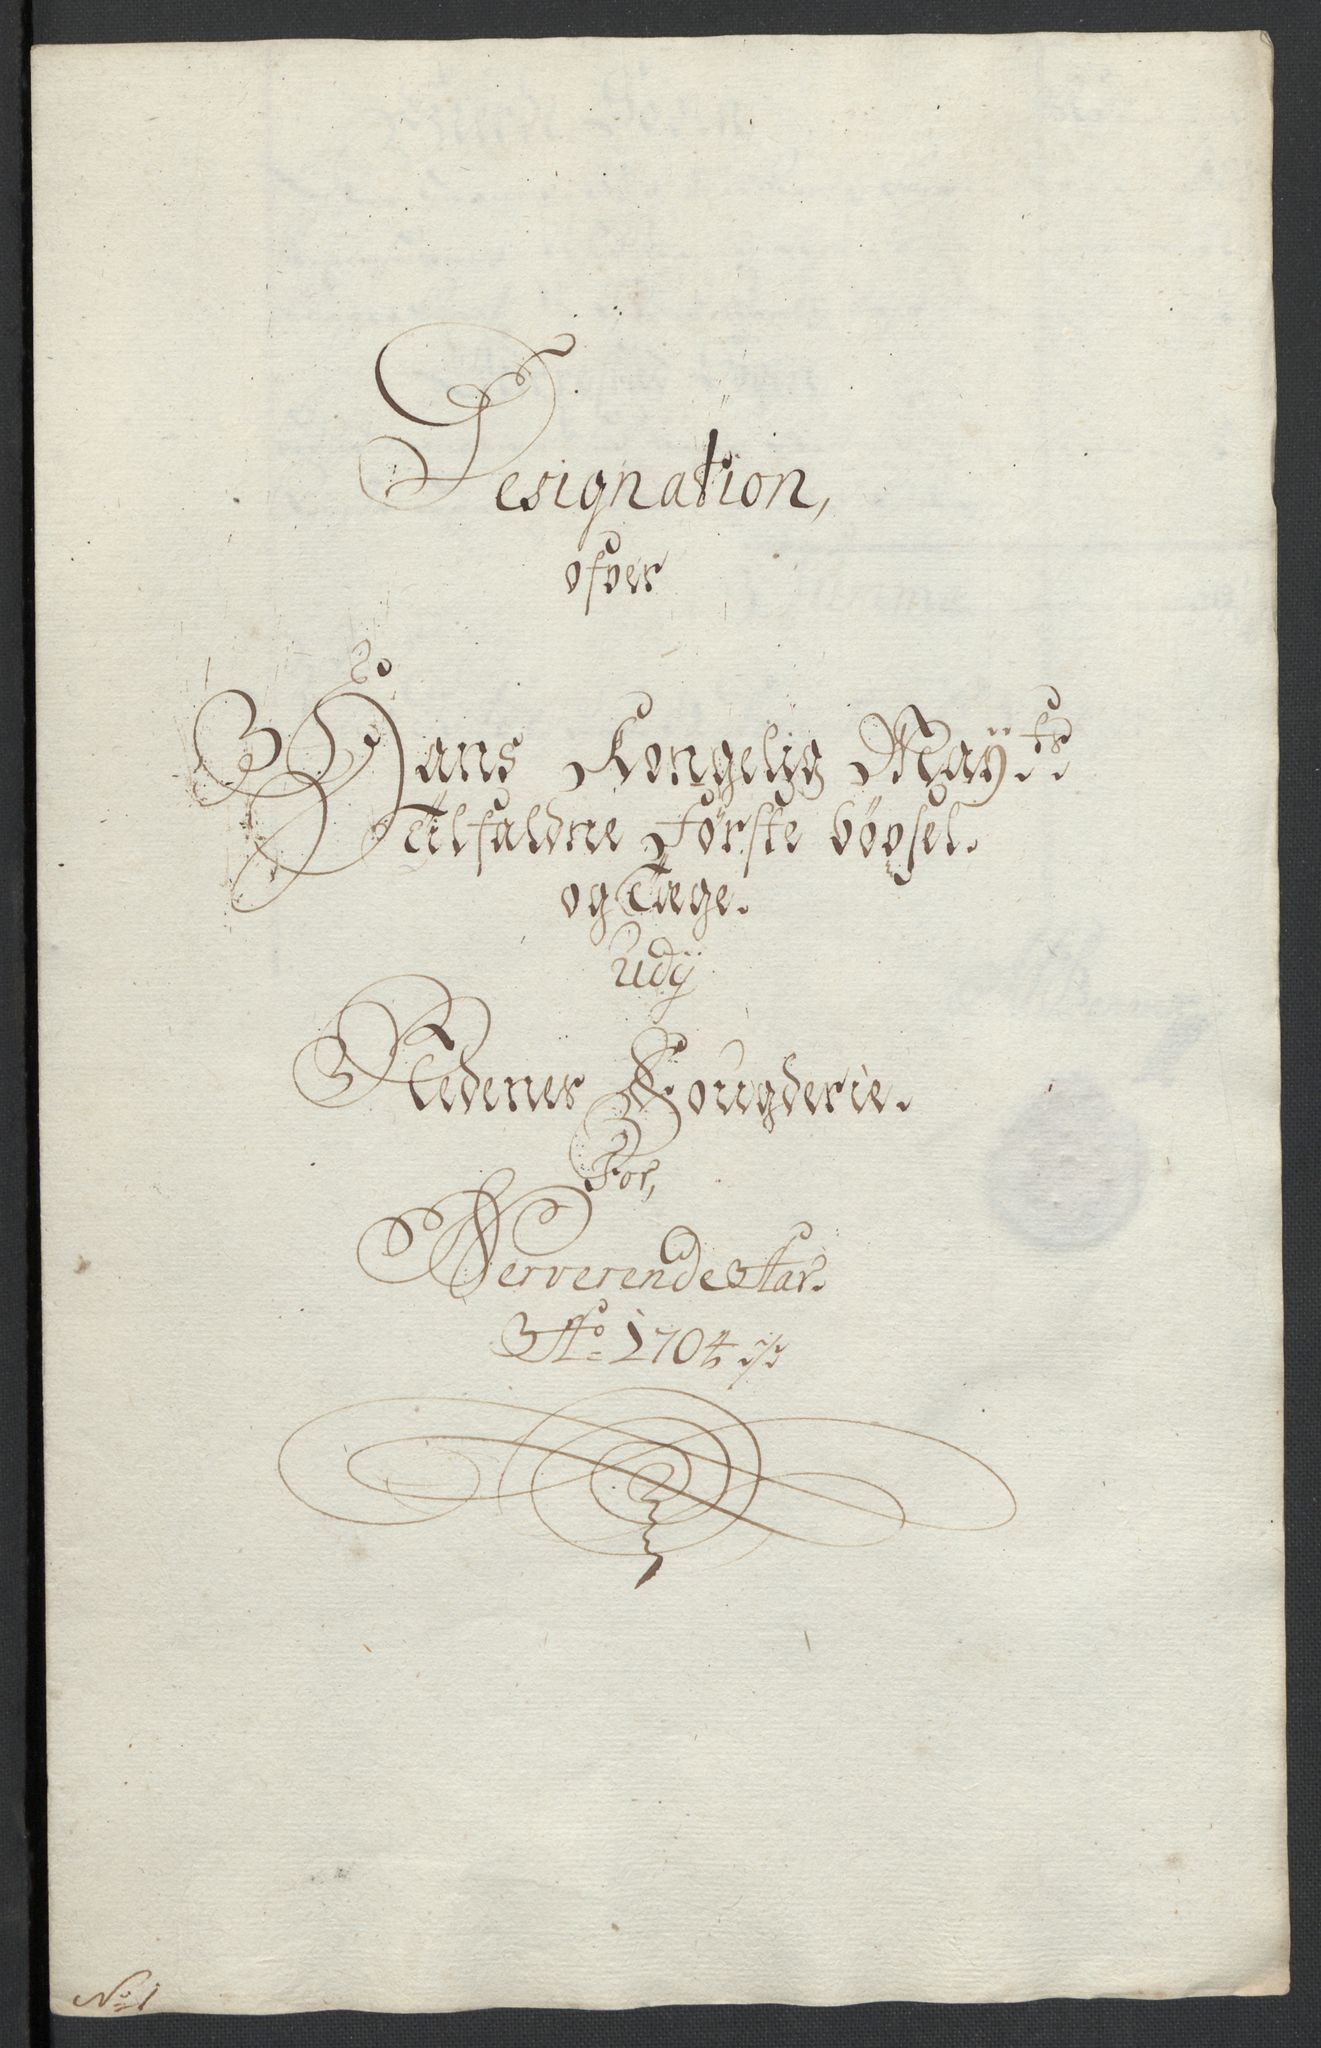 Designation,
ofver
Hans Kongelig Mayꝭ ts
Tilfaldne Første bøysel.
og Tæge.
Udÿ
Nedenes Fougderie.
For,
Nerverende Aar.
Ao 1704
No 1